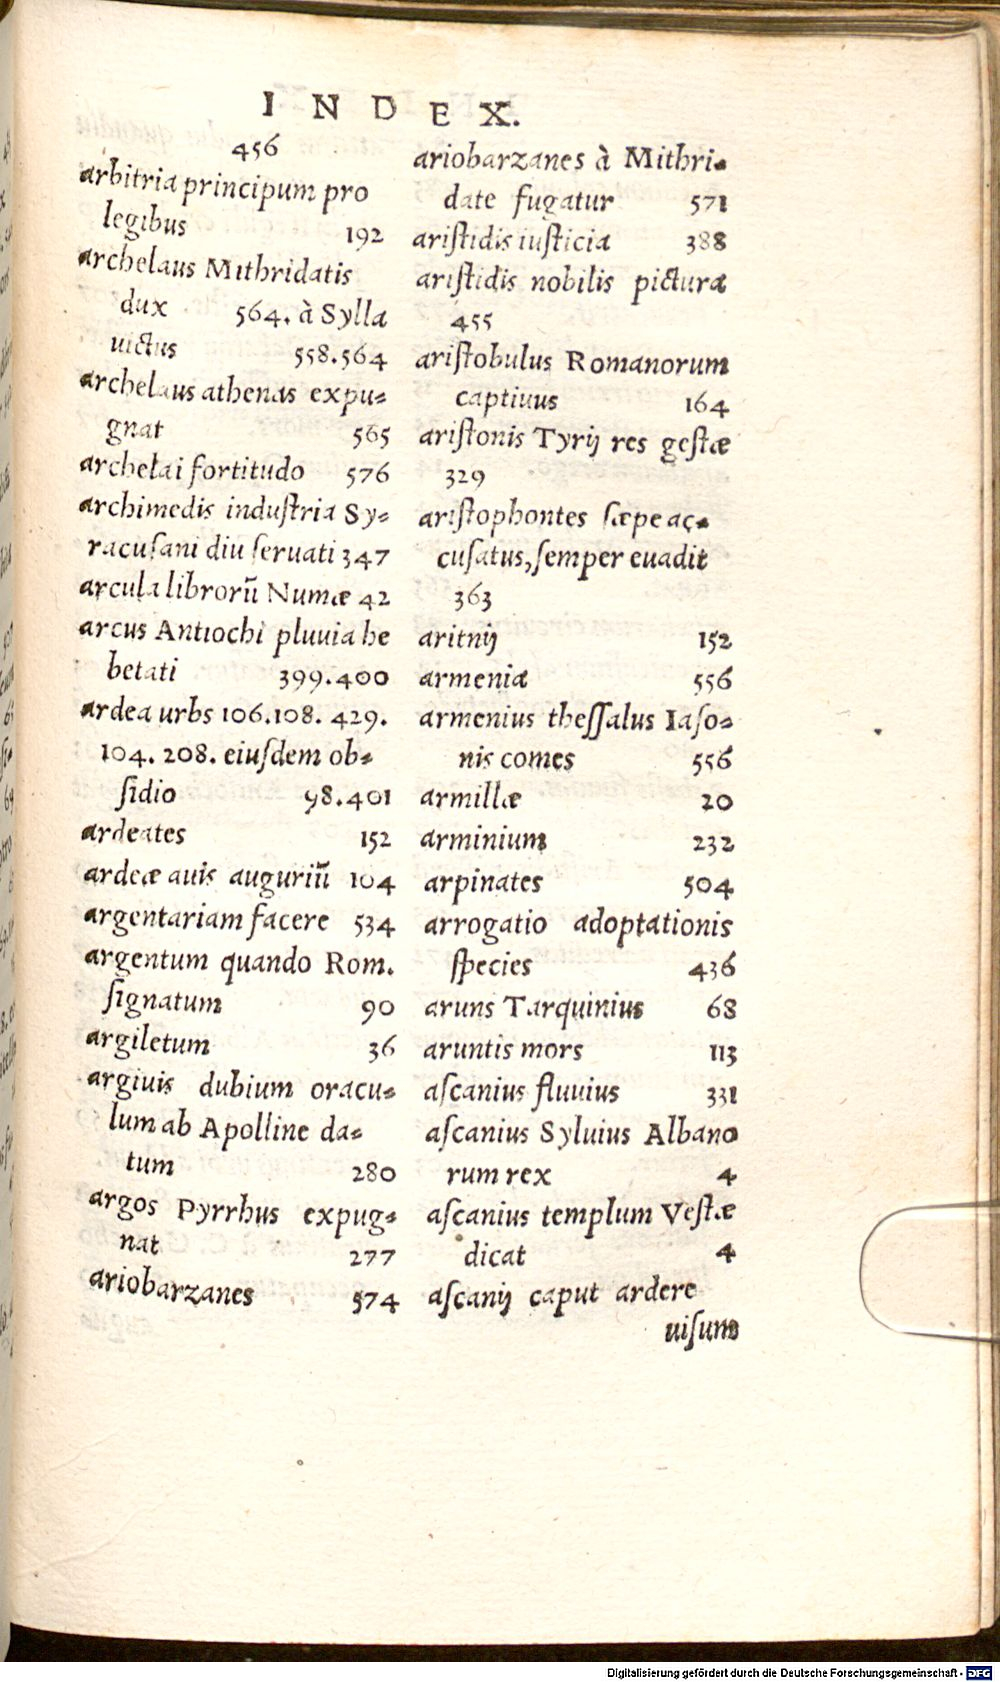 INDEX.
456
arbitria principum pro
legibus 192
archelaus Mithridatis
dux 564. à Sylla
uictus 558.564
archelaus athenas expu-
gnat 565
archelai fortitudo 576
archimedis induſtria Sy-
racuſani diu ſeruati 347
arcula librorū Numæ 42
arcus Antiochi pluuia he
betati 399.400
ardea urbs 106.108. 429.
104. 208. eiuſdem ob-
ſidio 98.401
ardeates 152
ardeæ auis auguriū 104
argentariam facere 534
argentum quando Rom.
ſignatum 90
argiletum 36
argiuis dubium oracu-
lum ab Apolline da-
tum 280
argos Pyrrhus expug-
nat 277
ariobarzanes 574
ariobarzanes à Mithri-
date fugatur 571
ariſtidis iuſticia 388
ariſtidis nobilis pictura
455
ariſtobulus Romanorum
captiuus 164
ariſtonis Tyrij res geſtæ
329
ariſtophontes ſæpe ac-
cuſatus, ſemper euadit
363
aritnij 152
armenia 556
armenius theſſalus Iaſo-
nis comes 556
armillæ 20
arminium 232
arpinates 504
arrogatio adoptationis
ſpecies 436
aruns Tarquinius 68
aruntis mors 113
aſcanius fluuius 331
aſcanius Syluius Albano
rum rex 4
aſcanius templum Veſtæ
dicat 4
aſcanij caput ardere
uiſum
Digitalisierung gefördert durch die Deutsche Forschungsgemeinschaft - DFG